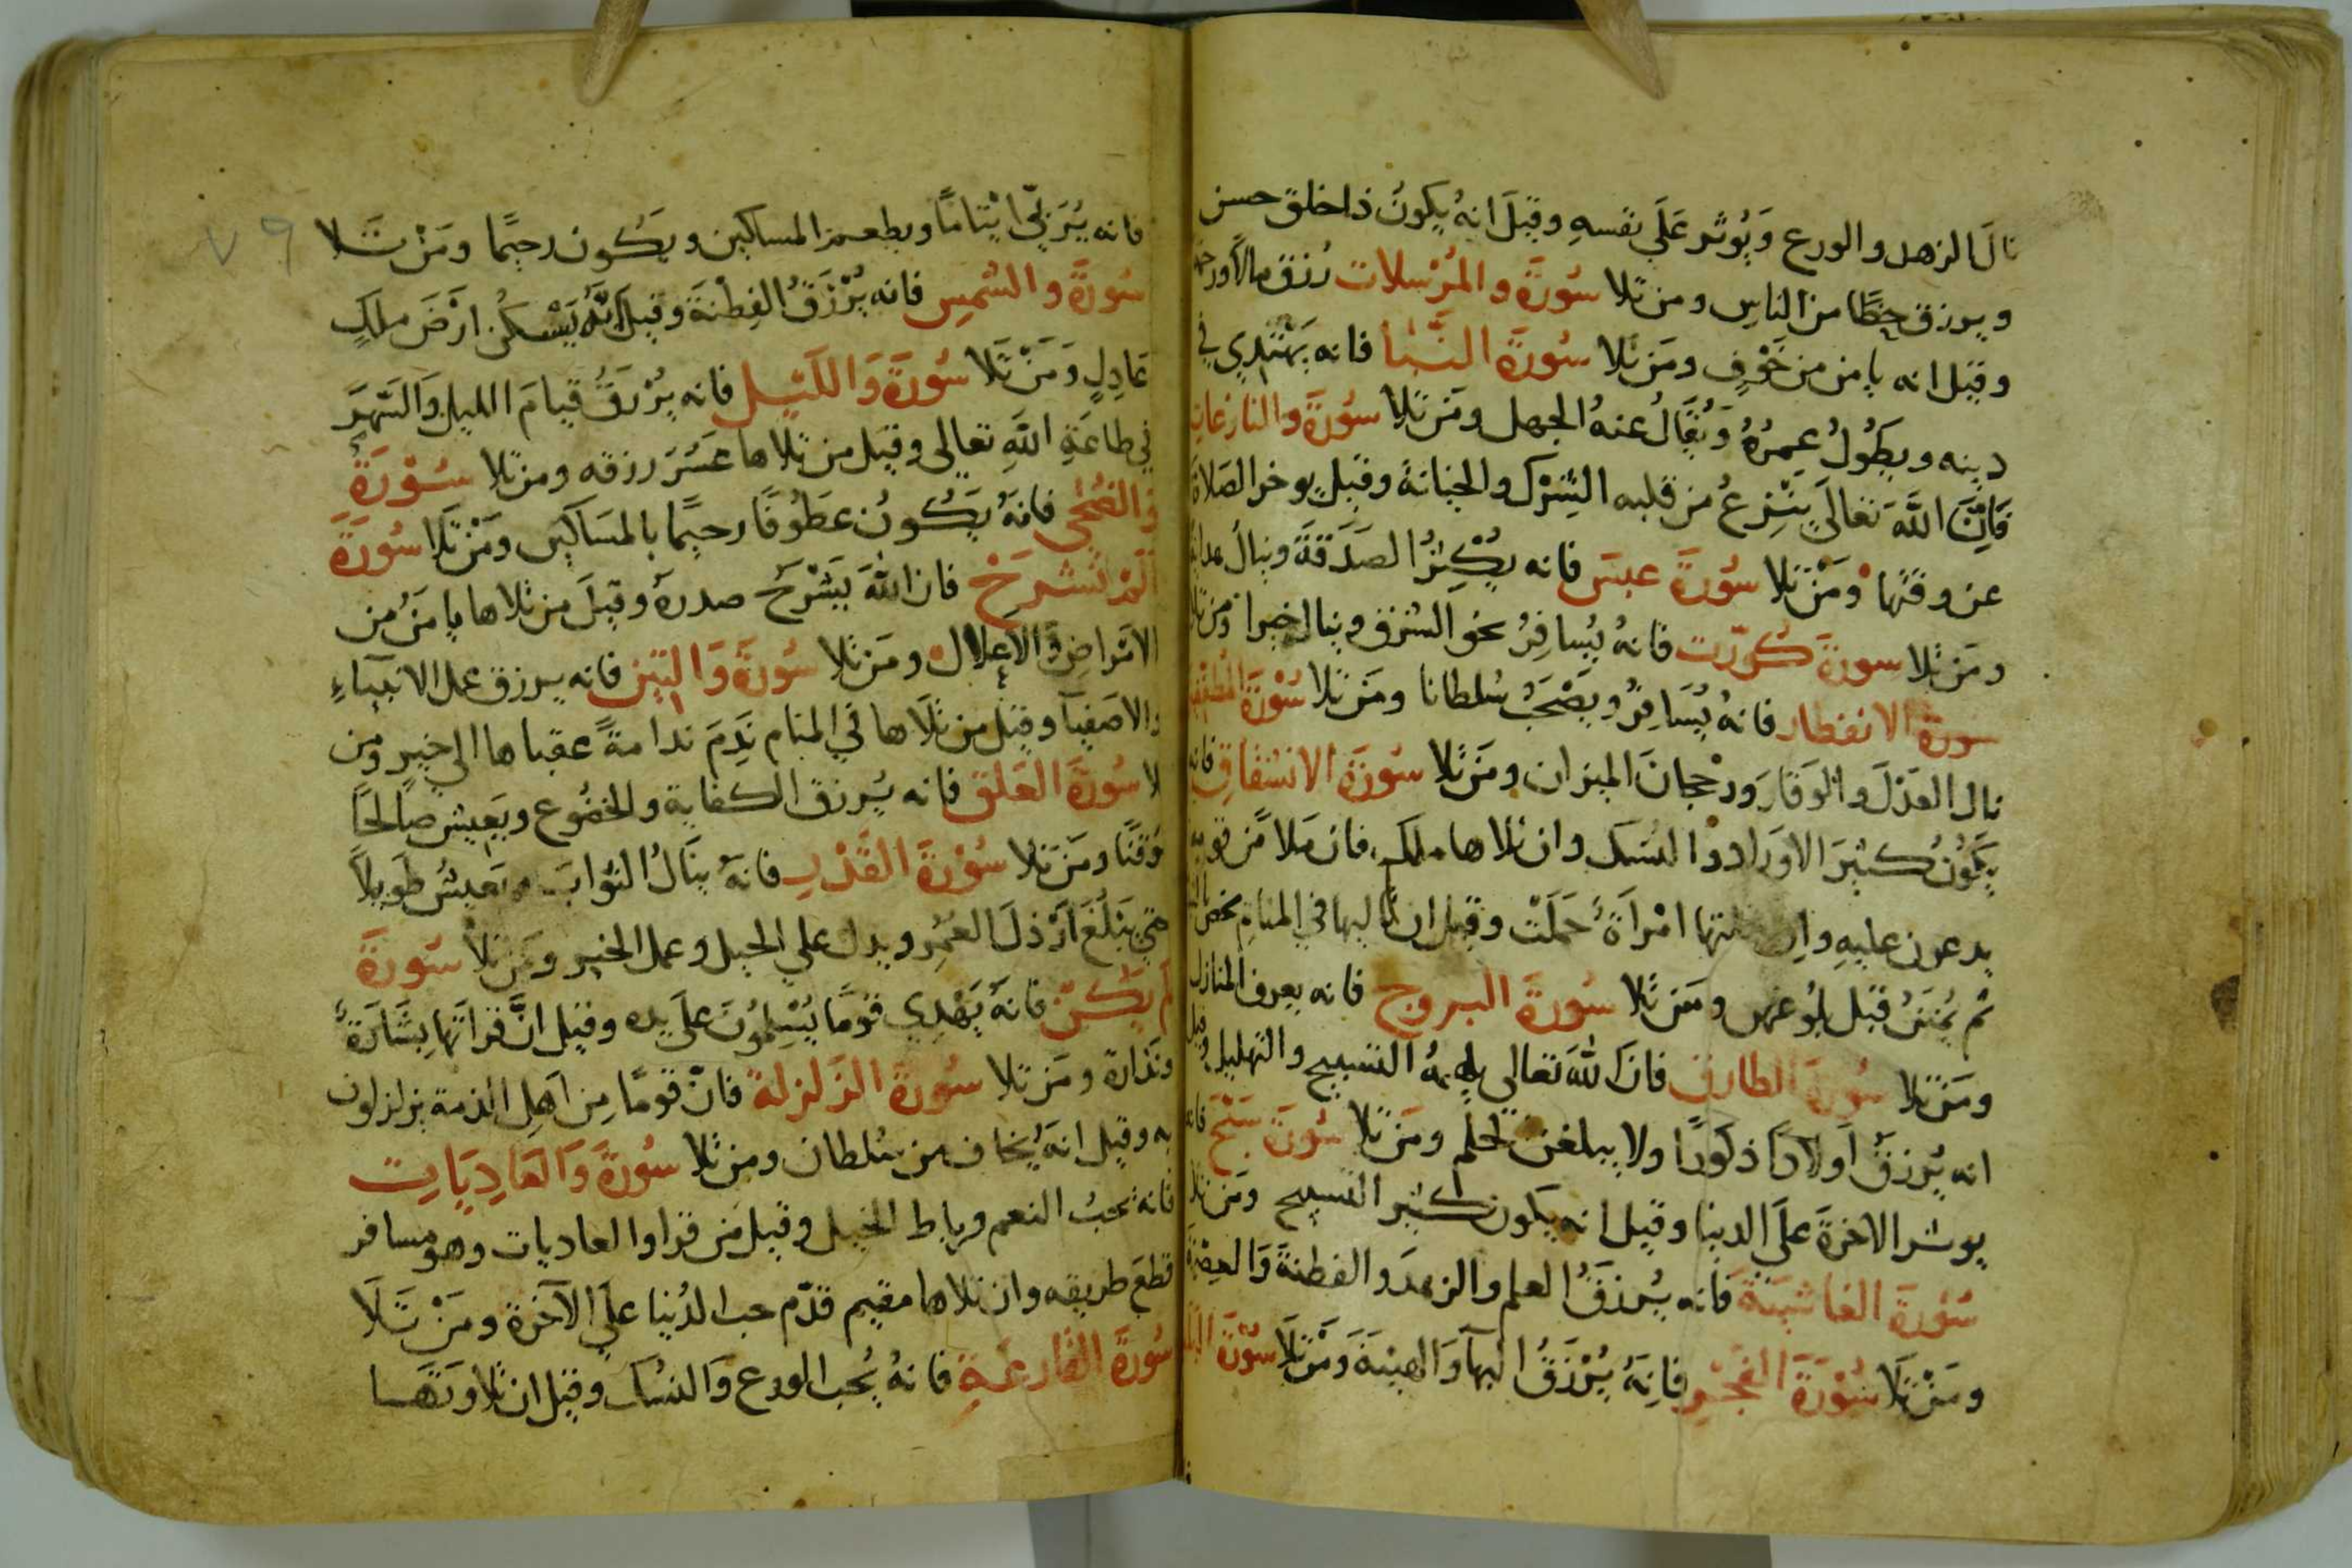 نالَ الزهد والورع وَيُوثر عَلَي نفسهِ وقيلَ انهُ يكونُ ذا خلق حسن
ويرزق حظًا من الناس ومن تلا سُورَةَ والمُرْسلات رُزق مالاً
وقيل انه يامن من خَوْفٍ ومَن تلا سُورَةَ النَّبَا فانه يَهْتَدِي في
دينه ويطُولُ عمرُهُ وَيُقَالُ عنهُ الجهل ومَن تلا سُورَةَ والنازعات
فَاِنَّ اللَّهَ تعَالَي يَنْزِعُ من قلبه الشِرْك والخيانة وقيل يوخر الصَلاة
عن وقتها ومَنْ تلا سُورَةَ عبسَ فانه يُكْثِرُ الصَدَقَةَ وينالُ
ومَن تلا سورةَ كُوِّرت فانهُ يُسافِرُ نحو الشرق وينال خيرا ومن تلا
سورة الانفطار فانهُ يُسَافِرُ ويَصْحَبُ سُلطانا ومَن تلا سُوْرَةَ المطففين
نال العَدْلَ والوَقَارَ ورجحانَ الميزان ومَن تلا سُورَةَ الانشقاقِ فانه
يَكُونُ كثيرَ الاورَاد والنسك وان تلاها ملك فان مَلأ من قومه
يدعون عليهِ واِن تلتها امْرَاَةٌ حَمَلَتْ وقيل ان تاليها في المنام
ثم يُمْنَعُ قبل بلوغهن ومَن تلا سُورةَ البروج فانه يعرف المنازل
ومَن تلا سُورةَ الطارق فانَّ اللهَ تعالي يلهمهُ التسبيح والتهليل وقيل
انه يُرزقُ اَولاَدًا ذكورًا ولا يبلغن الحلم ومَن تلا سُورَةَ سَبّحَ فانه
يوثر الاخرةَ علَي الدنيا وقيل انه يكون كثير التسبيح ومَن تلا
سُورةَ الغاشيةَ فانه يُرزَقُ العلم والزهدَ والفطنةَ وَالعِصْمَةَ
ومَنْ تلَا سُوْرَةَ الفَجْرِ فانهُ يُرْزَقُ البهآ وَالهيبةَ وَمَنْ تلَا سُوْرَةَ البلد
فانه يُرَبّي ايْتامًا ويطعم المساكين ويَكُون رحيمًا ومَنْ تَلا
سُورَةَ والشمسِ فانه يُرْزَقُ الفِطْنَةَ وقيل اَنَّهُ يَسْكُنُ ارْضَ ملكٍ
عَادِلٍ وَمَنْ تَلا سُورَةَ وَاللَيْلِ فانه يُرْزَقُ قيامَ الليلِ وَالسَهَرَ
في طاعَةِ اللَّهِ تعالي وقيل من تلاها عَسُرَ رزقه ومن تلا سُوْرَةَ
وَالضُحَي فانهُ يَكُونُ عَطُوفًا رحيمًا بالمسَاكينِ ومَنْ تَلَا سُورَةَ
اَلَمْ نَشْرَحْ فان اللهَ يَشْرَحُ صدرهُ وقيلَ من تلاها يامَنُ من
الامْراضِ وَالاعلال ومَن تلا سُورَةَ وَالتين فانه يرزق عمل الانبيَاءِ
والاصفِيآ وقيل من تلَاها في المنام نَدِمَ ندامةً عقباها الي خير ومن
تلا سُورَةَ العَلَق فانه يُرزق الكفاية والخضُوع ويَعِيش صالحًا
ومَن تلا سُوْرَةَ القَدْرِ فانهُ ينَالُ الثوابَ ويَعيشُ طَويلاً
حتي يَبْلُغَ اَرْذلَ العُمُرِ ويدل علي الحيل وعمل الخير ومَن تلا سُورَةَ
لم يَكُنْ فانهُ يَهْدِي قومًا يُسْلِمُونَ علَي يده وقيل انَّ قرأتها بِشَارَةٌ
ونَذارة ومَن تلا سُورةَ الزلزلة فانّ قومًا مِن اَهلِ الذمة يزلزلون
به وقيل انهُ يُخاف من سُلطان ومن تلا سُورَةَ وَالعَادِيَاتِ
فانه يحبُ النعم ورباط الخيل وقيل مَن قرا والعاديات وهو مسافر
قطعَ طريقه وان تلاها مقيم قدّم حب الدُنيا علَي الآخَرة ومَنْ تَلَا
سُورَةَ القَارعَةِ فانهُ يُحِب الورع وَالنسُك وقيل ان تلاوتَهَا